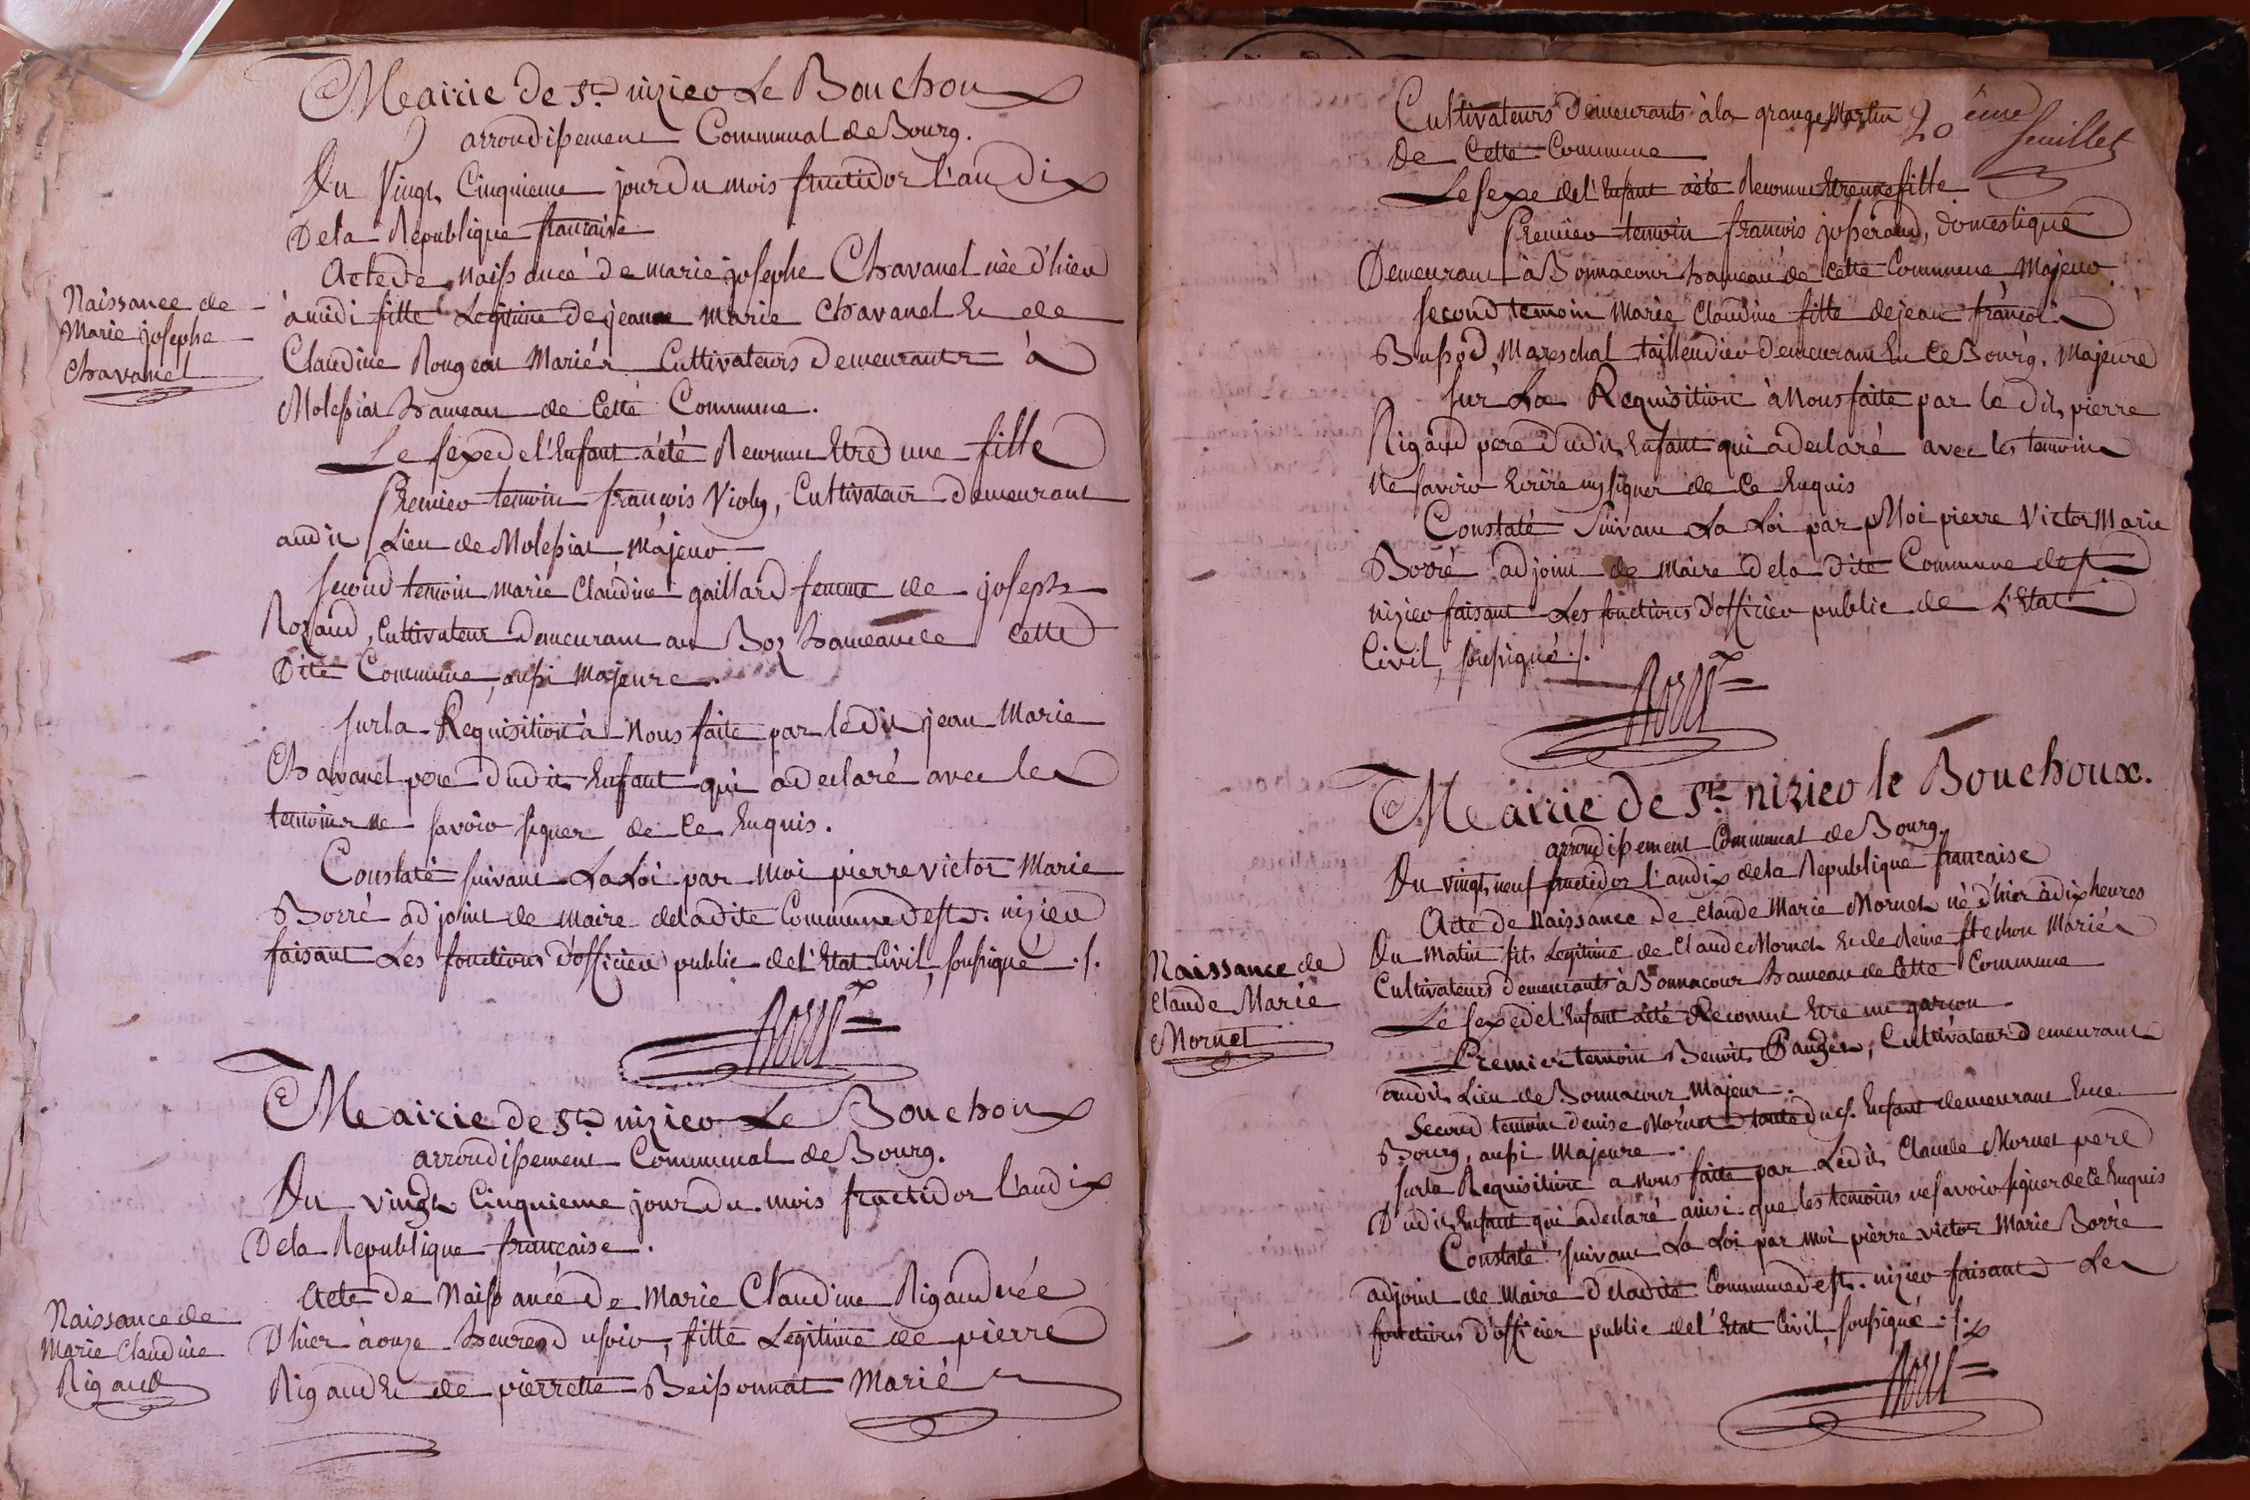 Mairie de St. nizier Le Bouchoux
arrondissement Communal de Bourg.
Du Vingt Cinquieme jour du mois fructidor l'an dix
De la Republique francaise
Acte de naissance de marie josephe Chavanel née d'hier
Naissance de
Marie josephe
Chavanel
à midi fille Legitime de jean marie Chavanel et de
Claudine Rougeau Mariés Cultivateurs Demeurants à
Molessiat hameau de Cette Commune.
Le sexe de l'Enfant à été Reconnu Etre une fille
Premier temoin françois Violy, Cultivateur Demeurant
audit Lieu de Molessiat Majeur
second temoin marie Claudine gaillard femme de joseph
Rozand, Cultivateur Demeurant au Boz hameau de Cette
Dite Commune, aussi Majeure.
sur la Requisition à nous faite par le dit jean Marie
Chavanel pere dudit Enfant qui a declaré avec les
temoins ne savoir signer de Ce Enquis.
Constaté suivant La Loi par moi pierre victor Marie
Borré adjoint de maire de la dite Commune de st. nizier
faisant Les fonctions d'officier public de l'Etat Civil, soussigné ./.
Borré
Mairie de St. nizier Le Bouchoux
arrondissement Communal de Bourg.
Du vingt Cinquieme jour du mois fructidor l'an dix
De la Republique française.
Acte de Naissance de Marie Claudine Rigaud née
Naissance de
Marie Claudine
Rigaud
D'hier à onze heures du soir, fille Legitime de pierre
Rigaud Et de pierrette Beissonnat Mariés
20 ême feuillet
Cultivateurs Demeurants à la grange Martin
De Cette Commune
Le sexe de l'Enfant à été Reconnu Etre une fille
Premier temoin françois josserand, Domestique
Demeurant à Bonnacour hameau de Cette Commune Majeur
second temoin Marie Claudine fille de jean françois
Bussod, Mareschal taillendier demeurant En Ce Bourg. Majeure
sur La Requisition à Nous faite par le dit pierre
Rigaud pere dudit Enfant qui a declaré avec les temoins
Ne savoir Ecrire ny signer de Ce Enquis
Constaté Suivant La Loi par Moi pierre Victor Marie
Borré adjoint de Maire De la dite Commune de st.
nizier faisant Les fonctions d'officier public de L'Etat
Civil, soussigné ./.
Borré
Mairie de St. nizier le Bouchoux.
arrondissement Communal de Bourg.
Du vingt neuf fructidor l'an dix de la Republique française
Acte de Naissance de Claude Marie Mornet né d'hier à dix heures
Naissance de
Claude Marie
Mornet
Du Matin fils Legitime de Claude Mornet Et de Reine Mariés
Cultivateurs demeurants à Bonnacour hameau de Cette Commune
Le sexe de l'Enfant à été Reconnu Etre un garçon
Premier temoin Benoit Cultivateur demeurant
audit Lieu de Bonnacour Majeur.
Second temoin denise Mornet tante dud. Enfant demeurant En ce
Bourg, aussi Majeure.
sur la Requisition a nous faitte par Ledit Claude Mornet pere
Dudit Enfant qui a declaré ainsi que les temoins ne savoir signer de Ce Enquis
Constaté suivant La Loi par moi pierre victor Marie Borré
adjoint de Maire De la dite Commune de st. nizier faisant Les
fonctions d'officier public de l'Etat Civil, soussigné ./.
Borré